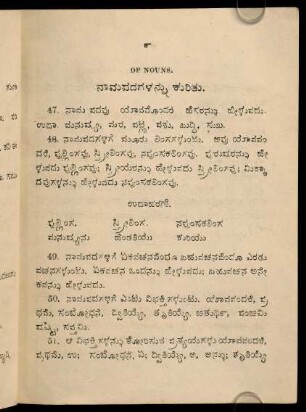 ೯
OF NOUNS.
ನಾಮಪದಗಳನ್ನು ಕುರಿತು.
47. ನಾಮ ಪದವು ಯಾವದೊಂದರ ಹೆಸರನ್ನು ಹೇಳುವದು.
ಉದಾ. ಮನುಷ್ಯ, ಮರ, ಪಟ್ಟಿ, ಪಶು, ಬುದ್ಧಿ, ಸುಖ.
48. ನಾಮಪದಗಳಿಗೆ ಮೂರು ಲಿಂಗಗಳುಂಟು. ಅವು ಯಾವವಂ
ದರೆ, ಪುಲ್ಲಿಂಗವು, ಸ್ತ್ರೀಲಿಂಗವು, ನಪುಂಸಕಲಿಂಗವು, ಪುರುಷರನ್ನು ಹೇ
ಳುವದು ಪುಲ್ಲಿಂಗವು; ಸ್ತ್ರೀಯರನ್ನು ಹೇಳುವದು ಸ್ತ್ರೀಲಿಂಗವು; ಮಿಕ್ಕಾ
ದವುಗಳನ್ನು ಹೇಳುವದು ನಪುಂಸಕಲಿಂಗವು.
ಉದಾಹರಣೆ.
ಪುಲ್ಲಿಂಗ. ಸ್ತ್ರೀಲಿಂಗ. ನಪುಂಸಕಲಿಂಗ
ಮನುಷ್ಯನು ಹೆಂಡತಿಯು ಕುರಿಯು
49. ನಾಮಪದಗಳಿಗೆ ಏಕವಚನವೆಂದೂ ಬಹುವಚನವೆಂದೂ ಎರಡು
ವಚನಗಳುಂಟು. ಏಕವಚನ ಒಂದನ್ನು ಹೇಳುವದು; ಬಹುವಚನ ಅನೇ
ಕವನ್ನು ಹೇಳುವದು.
50. ನಾಮಪದಗಳಿಗೆ ಎಂಟು ವಿಭಕ್ತಿಗಳುಂಟು. ಯಾವವಂದರೆ, ಪ್ರ
ಥಮೆ, ಸಂಬೋಧನೆ, ದ್ವಿತಿಯ್ಯೇ, ತೃತಿಯ್ಯೇ, ಚತುರ್ಥಿ, ಪಂಚಮಿ
ಷಷ್ಟಿ, ಸಪ್ತಮಿ.
51. ಆ ವಿಭಕ್ತಿಗಳನ್ನು ತೋರಿಸುವ ಪ್ರತ್ಯಯಗಳು ಯಾವವಂದರೆ,
ಪ್ರಥಮೆ, ಉ; ಸಂಬೋಧನೆ, ಏ; ದ್ವಿತಿಯ್ಯೇ, ಅ, ಅನ್ನು; ತೃತಿಯ್ಯೇ